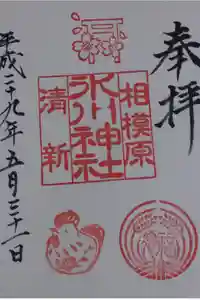 奉拝
相模原
氷川神社
清新
平成二十九年五月三十一日